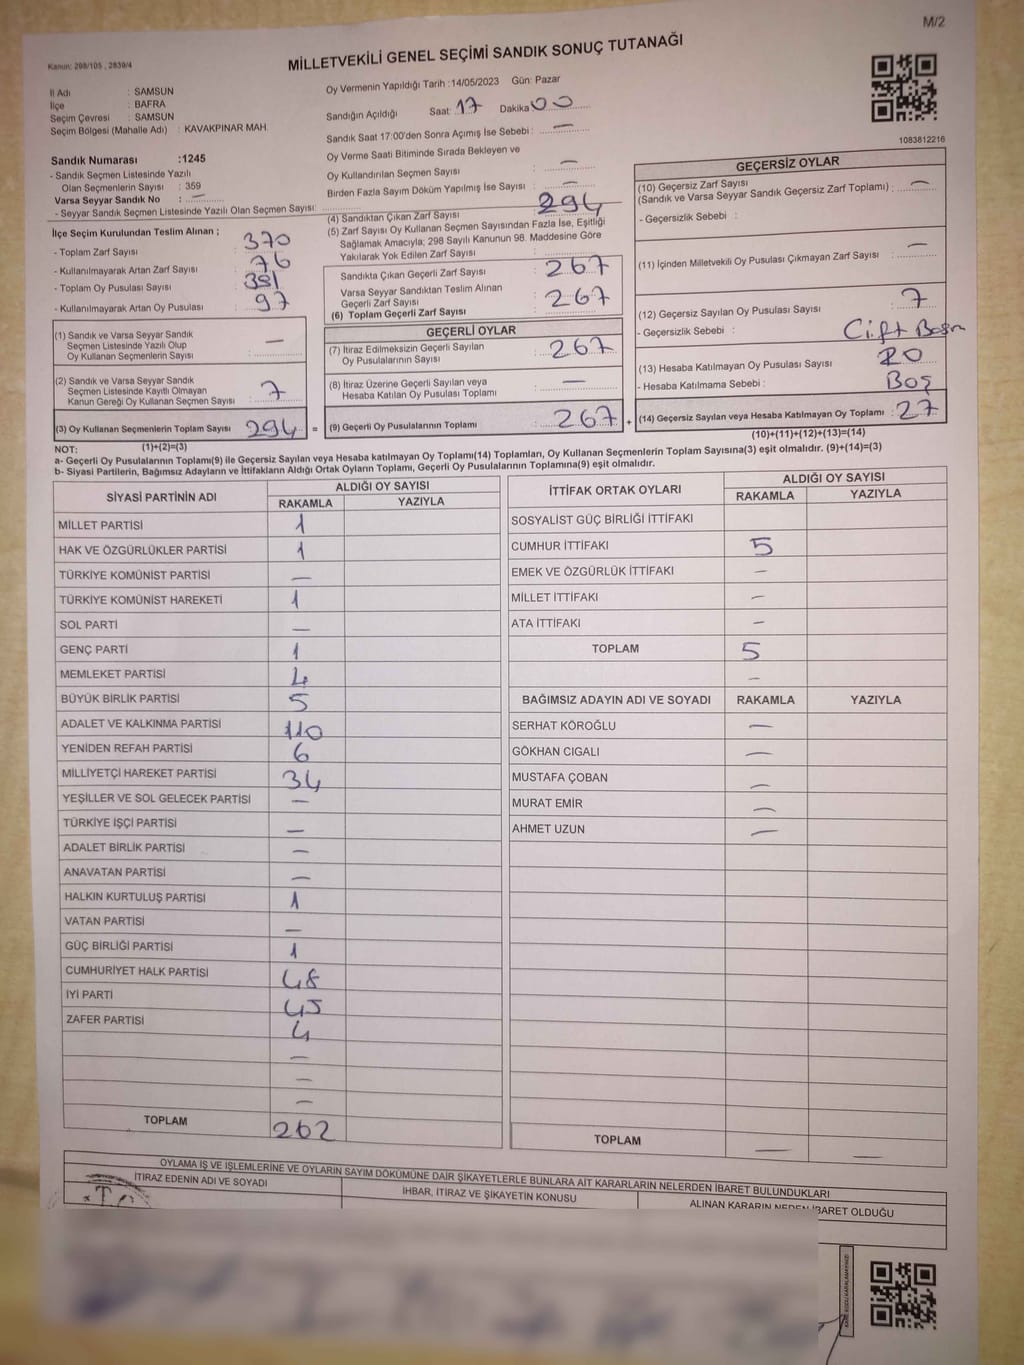 M/2
Kanun: 298/105, 2839/4
MİLLETVEKİLİ GENEL SEÇİMİ SANDIK SONUÇ TUTANAĞI
İl Adı : SAMSUN
İlçe : BAFRA
Seçim Çevresi : SAMSUN
Seçim Bölgesi (Mahalle Adı) : KAVAKPINAR MAH.
Sandık Numarası :1245
- Sandık Seçmen Listesinde Yazılı
Olan Seçmenlerin Sayısı : 359
Varsa Seyyar Sandık No : —
- Seyyar Sandık Seçmen Listesinde Yazılı Olan Seçmen Sayısı:
İlçe Seçim Kurulundan Teslim Alınan ;
- Toplam Zarf Sayısı : 370
- Kullanılmayarak Artan Zarf Sayısı : 76
- Toplam Oy Pusulası Sayısı : 391
- Kullanılmayarak Artan Oy Pusulası : 97
(1) Sandık ve Varsa Seyyar Sandık
Seçmen Listesinde Yazılı Olup
Oy Kullanan Seçmenlerin Sayısı : —
(2) Sandık ve Varsa Seyyar Sandık
Seçmen Listesinde Kayıtlı Olmayan
Kanun Gereği Oy Kullanan Seçmen Sayısı : 7
(3) Oy Kullanan Seçmenlerin Toplam Sayısı : 294 =
(1)+(2)=(3)
Oy Vermenin Yapıldığı Tarih :14/05/2023 Gün: Pazar
Sandığın Açıldığı Saat: 17 Dakika: 00
Sandık Saat 17:00'den Sonra Açımış İse Sebebi : —
Oy Verme Saati Bitiminde Sırada Bekleyen ve
Oy Kullandırılan Seçmen Sayısı : —
Birden Fazla Sayım Döküm Yapılmış İse Sayısı : —
(4) Sandıktan Çıkan Zarf Sayısı : 294
(5) Zarf Sayısı Oy Kullanan Seçmen Sayısından Fazla İse, Eşitliği
Sağlamak Amacıyla; 298 Sayılı Kanunun 98. Maddesine Göre
Yakılarak Yok Edilen Zarf Sayısı :
Sandıkta Çıkan Geçerli Zarf Sayısı : 267
Varsa Seyyar Sandıktan Teslim Alınan
Geçerli Zarf Sayısı :
(6) Toplam Geçerli Zarf Sayısı : 267
GEÇERLİ OYLAR
(7) İtiraz Edilmeksizin Geçerli Sayılan
Oy Pusulalarının Sayısı : 267
(8) İtiraz Üzerine Geçerli Sayılan veya
Hesaba Katılan Oy Pusulası Toplamı : —
(9) Geçerli Oy Pusulalarının Toplamı : 267 +
1083812216
GEÇERSİZ OYLAR
(10) Geçersiz Zarf Sayısı
(Sandık ve Varsa Seyyar Sandık Geçersiz Zarf Toplamı) : —
- Geçersizlik Sebebi :
(11) İçinden Milletvekili Oy Pusulası Çıkmayan Zarf Sayısı : —
(12) Geçersiz Sayılan Oy Pusulası Sayısı : 7
- Geçersizlik Sebebi : Çift Basım
(13) Hesaba Katılmayan Oy Pusulası Sayısı : 20
- Hesaba Katılmama Sebebi : Boş
(14) Geçersiz Sayılan veya Hesaba Katılmayan Oy Toplamı : 27
(10)+(11)+(12)+(13)=(14)
NOT:
a- Geçerli Oy Pusulalarının Toplamı(9) ile Geçersiz Sayılan veya Hesaba katılmayan Oy Toplamı(14) Toplamları, Oy Kullanan Seçmenlerin Toplam Sayısına(3) eşit olmalıdır. (9)+(14)=(3)
b- Siyasi Partilerin, Bağımsız Adayların ve İttifakların Aldığı Ortak Oyların Toplamı, Geçerli Oy Pusulalarının Toplamına(9) eşit olmalıdır.
SİYASİ PARTİNİN ADI ALDIĞI OY SAYISI
RAKAMLA YAZIYLA
MİLLET PARTİSİ 1
HAK VE ÖZGÜRLÜKLER PARTİSİ 1
TÜRKİYE KOMÜNİST PARTİSİ —
TÜRKİYE KOMÜNİST HAREKETİ 1
SOL PARTİ —
GENÇ PARTİ 1
MEMLEKET PARTİSİ 4
BÜYÜK BİRLİK PARTİSİ 5
ADALET VE KALKINMA PARTİSİ 110
YENİDEN REFAH PARTİSİ 6
MİLLİYETÇİ HAREKET PARTİSİ 34
YEŞİLLER VE SOL GELECEK PARTİSİ —
TÜRKİYE İŞÇİ PARTİSİ —
ADALET BİRLİK PARTİSİ —
ANAVATAN PARTİSİ —
HALKIN KURTULUŞ PARTİSİ 1
VATAN PARTİSİ —
GÜÇ BİRLİĞİ PARTİSİ 1
CUMHURİYET HALK PARTİSİ 48
İYİ PARTİ 45
ZAFER PARTİSİ 4
—
—
—
TOPLAM 262
İTTİFAK ORTAK OYLARI ALDIĞI OY SAYISI
RAKAMLA YAZIYLA
SOSYALİST GÜÇ BİRLİĞİ İTTİFAKI
CUMHUR İTTİFAKI 5
EMEK VE ÖZGÜRLÜK İTTİFAKI —
MİLLET İTTİFAKI —
ATA İTTİFAKI —
TOPLAM 5
—
BAĞIMSIZ ADAYIN ADI VE SOYADI RAKAMLA YAZIYLA
SERHAT KÖROĞLU —
GÖKHAN CIGALI —
MUSTAFA ÇOBAN —
MURAT EMİR —
AHMET UZUN —
TOPLAM — —
OYLAMA İŞ VE İŞLEMLERİNE VE OYLARIN SAYIM DÖKÜMÜNE DAİR ŞİKAYETLERLE BUNLARA AİT KARARLARIN NELERDEN İBARET BULUNDUKLARI
İTİRAZ EDENİN ADI VE SOYADI
İHBAR, İTİRAZ VE ŞİKAYETİN KONUSU
ALINAN KARARIN NEDEN İBARET OLDUĞU